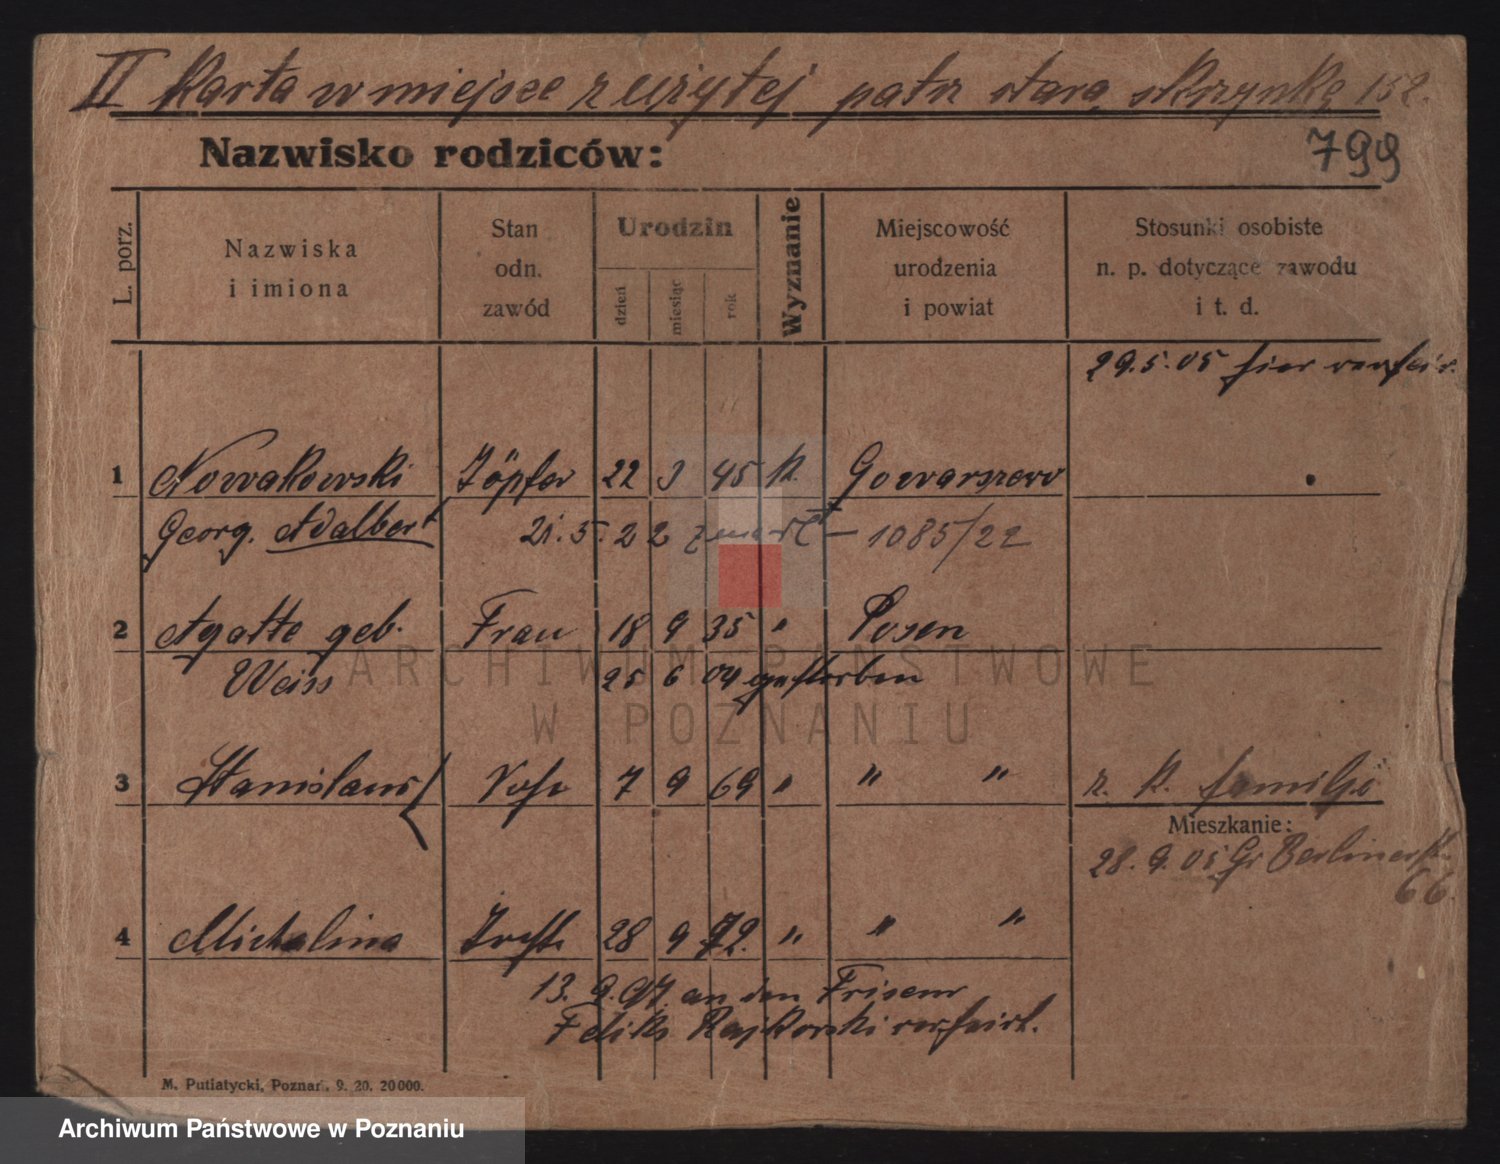 II Karta w miejsce zużytej patrz stara skrzynkę 152.
Nazwisko rodziców:
799
L. porz.
Nazwiska
i imiona
Stan
odn.
zawód
Urodzin
dzień
miesiąc
rok
Wyznanie
Miejscowość
urodzenia
i powiat
Stosunki osobiste
n. p. dotyczące zawodu
i t. d.
29.5.05 hier verheir.
1 Nowakowski Töpfer 22 3 45 K. Gowarszewo
Georg. Adalbert 21.5.22 zmarł — 1085/22
2 Agatte geb. Frau 18 9 35 " Posen
Weiss 25 6 04 gestorben
3 Stanislaus Sohn 7 9 69 " " " r. K.
Mieszkanie:
28.9.05 Gr Berlinerstr.
66.
4 Michalina 28 9 72. " " "
13.9.97. an den Friseur
Feliks Rajkowski verheirt.
M. Putiatycki, Poznań. 9. 20. 20000.
ARCHIWUM PAŃSTWOWE
W POZNANIU
Archiwum Państwowe w Poznaniu